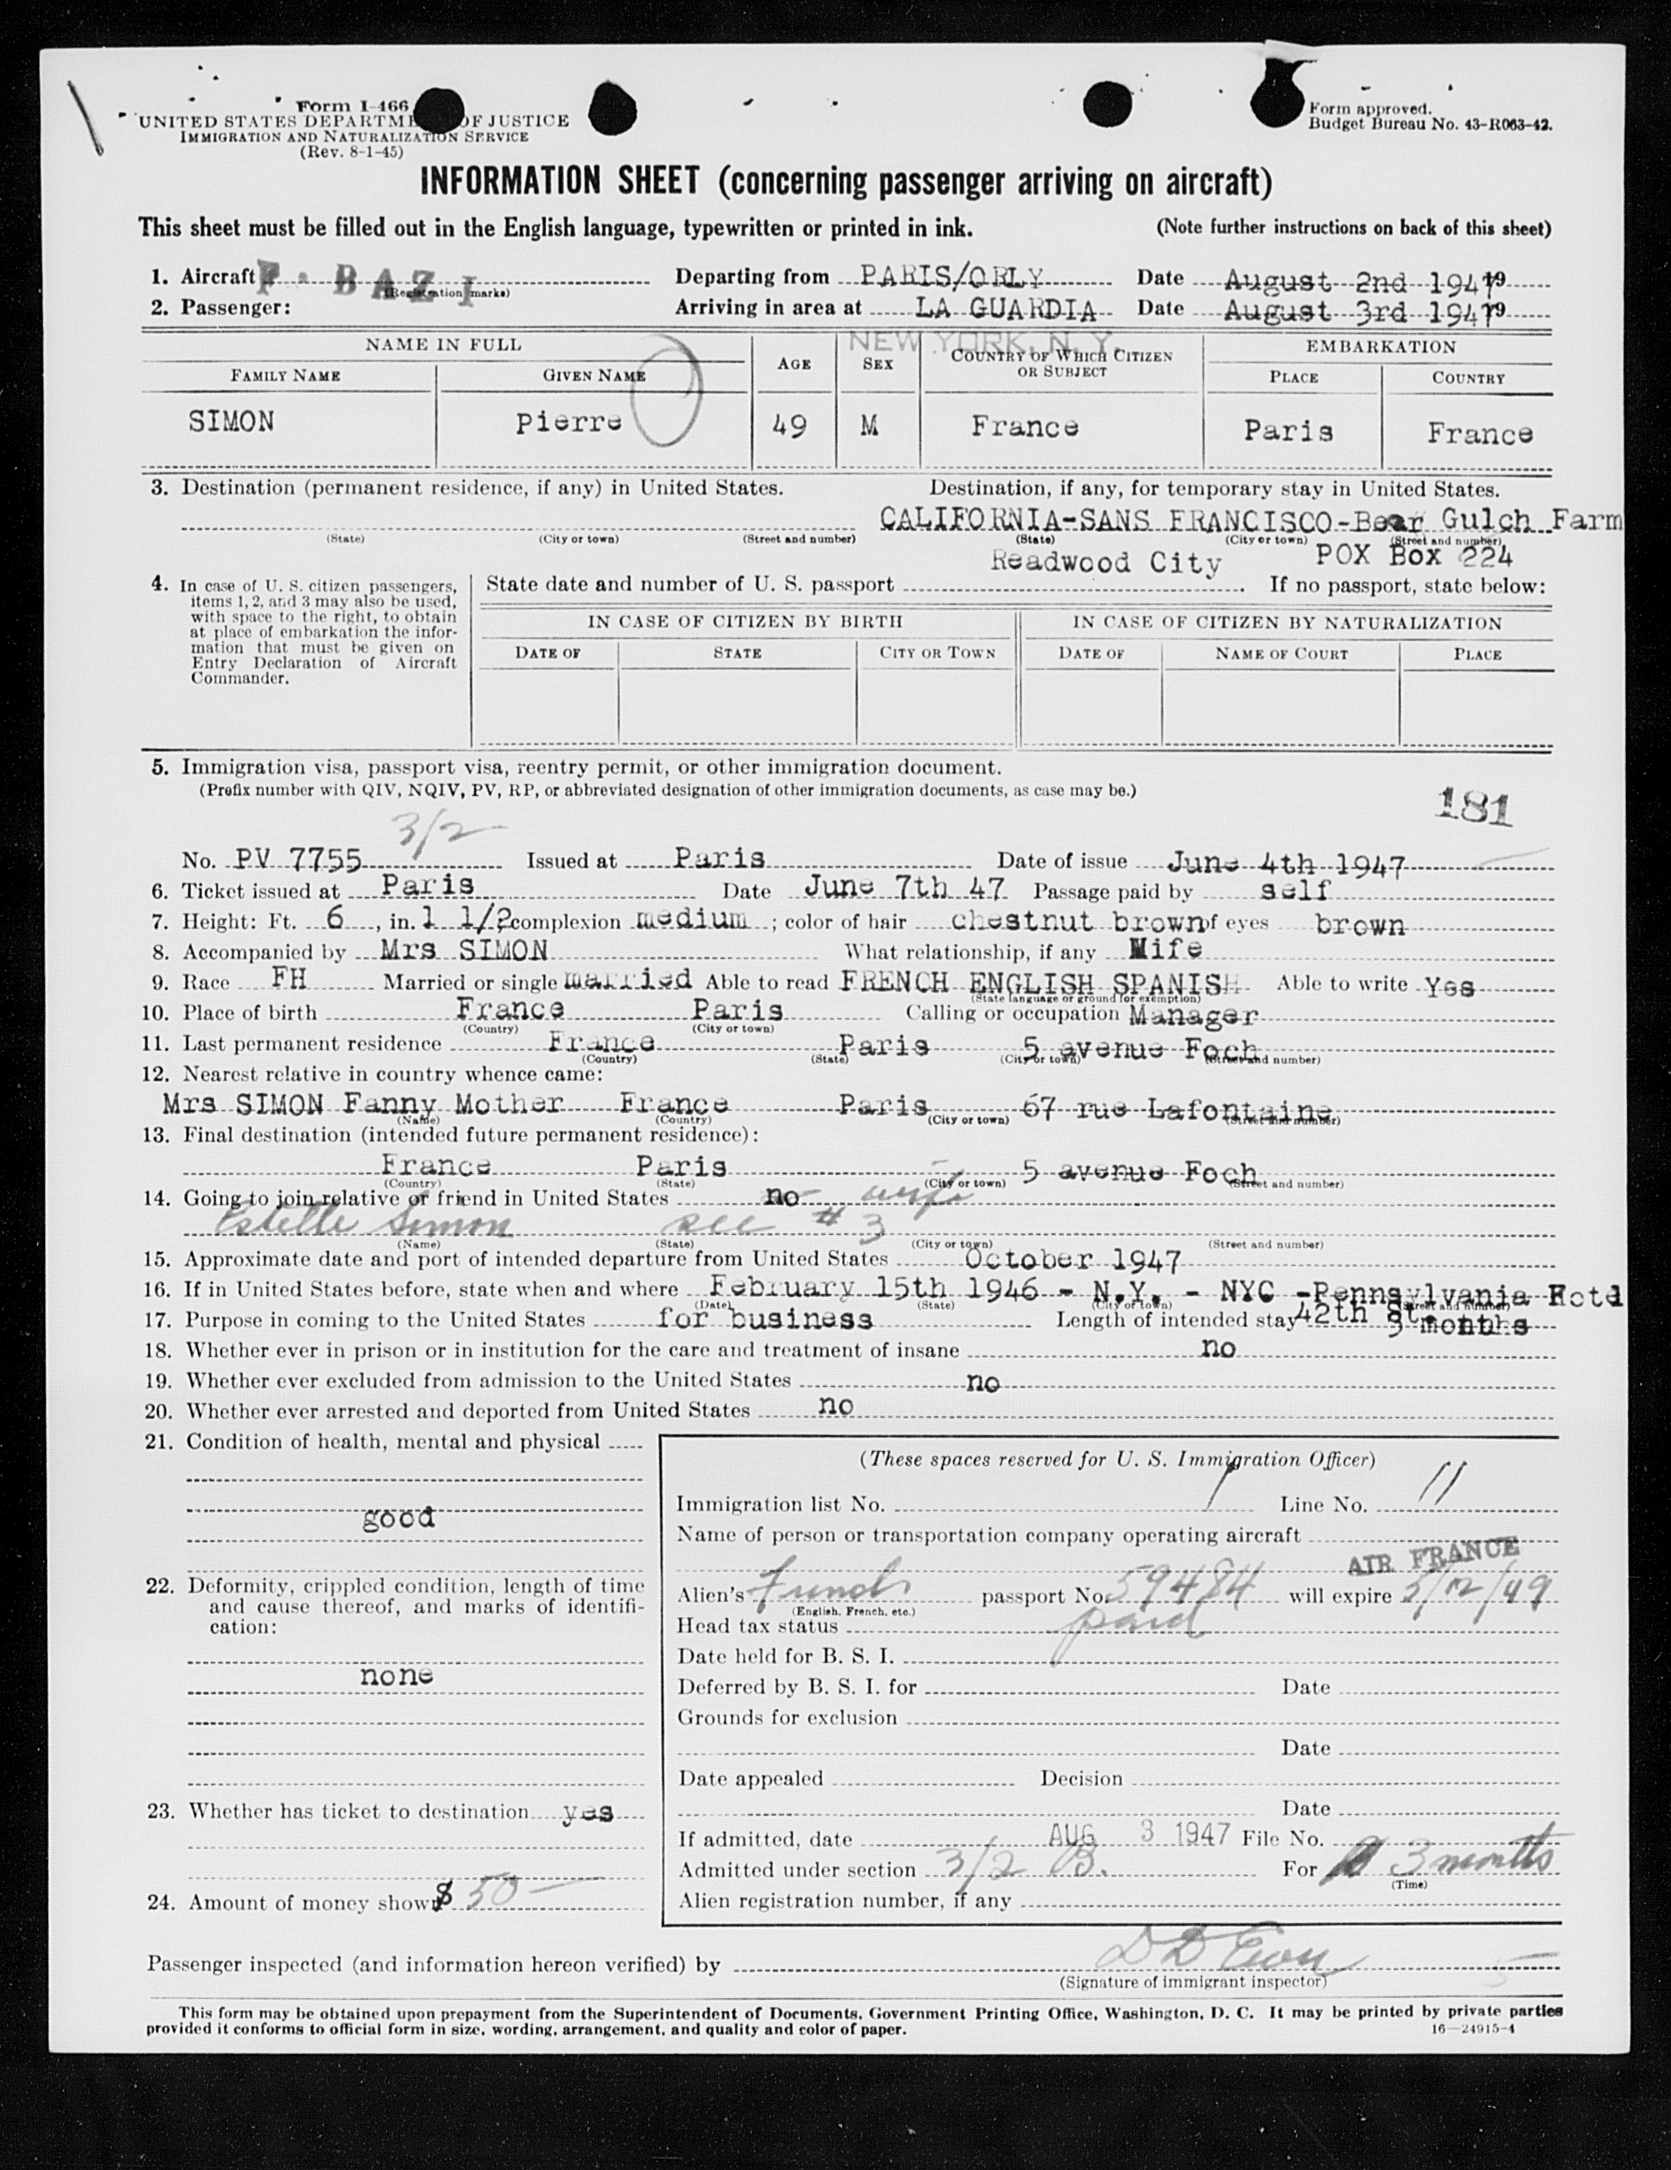 Form I-466
UNITED STATES DEPARTMENT OF JUSTICE
IMMIGRATION AND NATURALIZATION SERVICE
(Rev. 8-1-45)
Form approved.
Budget Bureau No. 43-R063-42.
INFORMATION SHEET (concerning passenger arriving on aircraft)
This sheet must be filled out in the English language, typewritten or printed in ink. (Note further instructions on back of this sheet)
1. Aircraft F·BAZI (Registration marks) Departing from PARIS/ORLY Date August 2nd 1947 19
2. Passenger: Arriving in area at LA GUARDIA Date August 3rd 1947 19
NEW YORK, N. Y.
NAME IN FULL AGE SEX COUNTRY OF WHICH CITIZEN OR SUBJECT EMBARKATION
FAMILY NAME GIVEN NAME PLACE COUNTRY
SIMON Pierre 49 M France Paris France
3. Destination (permanent residence, if any) in United States. Destination, if any, for temporary stay in United States.
CALIFORNIA-SANS FRANCISCO-Bear Gulch Farm
(State) (City or town) (Street and number) (State) (City or town) (Street and number)
Readwood City POX Box 224
4. In case of U. S. citizen passengers, items 1, 2, and 3 may also be used, with space to the right, to obtain at place of embarkation the information that must be given on Entry Declaration of Aircraft Commander.
State date and number of U. S. passport . If no passport, state below:
IN CASE OF CITIZEN BY BIRTH IN CASE OF CITIZEN BY NATURALIZATION
DATE OF STATE CITY OR TOWN DATE OF NAME OF COURT PLACE
5. Immigration visa, passport visa, reentry permit, or other immigration document.
(Prefix number with QIV, NQIV, PV, RP, or abbreviated designation of other immigration documents, as case may be.)
181
3/2
No. PV 7755 Issued at Paris Date of issue June 4th 1947
6. Ticket issued at Paris Date June 7th 47 Passage paid by self
7. Height: Ft. 6, in. 1 1/2 complexion medium; color of hair chestnut brown of eyes brown
8. Accompanied by Mrs SIMON What relationship, if any Wife
9. Race FH Married or single married Able to read FRENCH ENGLISH SPANISH Able to write Yes
(State language or ground for exemption)
10. Place of birth France Paris Calling or occupation Manager
(Country) (City or town)
11. Last permanent residence France Paris 5 avenue Foch
(Country) (State) (City or town) (Street and number)
12. Nearest relative in country whence came:
Mrs SIMON Fanny Mother France Paris 67 rue Lafontaine
(Name) (Country) (City or town) (Street and number)
13. Final destination (intended future permanent residence):
France Paris 5 avenue Foch
(Country) (State) (City or town) (Street and number)
14. Going to join relative or friend in United States no wife
Estelle Simon see # 3
(Name) (State) (City or town) (Street and number)
15. Approximate date and port of intended departure from United States October 1947
16. If in United States before, state when and where February 15th 1946 - N.Y. - NYC -Pennsylvania Hotel
(Date) (State) (City or town) (Street and number)
42th St.
17. Purpose in coming to the United States for business Length of intended stay 3 months
18. Whether ever in prison or in institution for the care and treatment of insane no
19. Whether ever excluded from admission to the United States no
20. Whether ever arrested and deported from United States no
21. Condition of health, mental and physical
good
22. Deformity, crippled condition, length of time and cause thereof, and marks of identification:
none
23. Whether has ticket to destination yes
24. Amount of money shown $ 50 —
(These spaces reserved for U. S. Immigration Officer)
Immigration list No. 1 Line No. 11
Name of person or transportation company operating aircraft
AIR FRANCE
Alien's French passport No. 59484 will expire 5/12/49
(English, French, etc.)
Head tax status paid
Date held for B. S. I.
Deferred by B. S. I. for Date
Grounds for exclusion
Date
Date appealed Decision
Date
If admitted, date AUG 3 1947 File No.
Admitted under section 3/2 B. For 3 months
(Time)
Alien registration number, if any
Passenger inspected (and information hereon verified) by
(Signature of immigrant inspector)
This form may be obtained upon prepayment from the Superintendent of Documents, Government Printing Office, Washington, D. C. It may be printed by private parties
provided it conforms to official form in size, wording, arrangement, and quality and color of paper. 16—24915-4